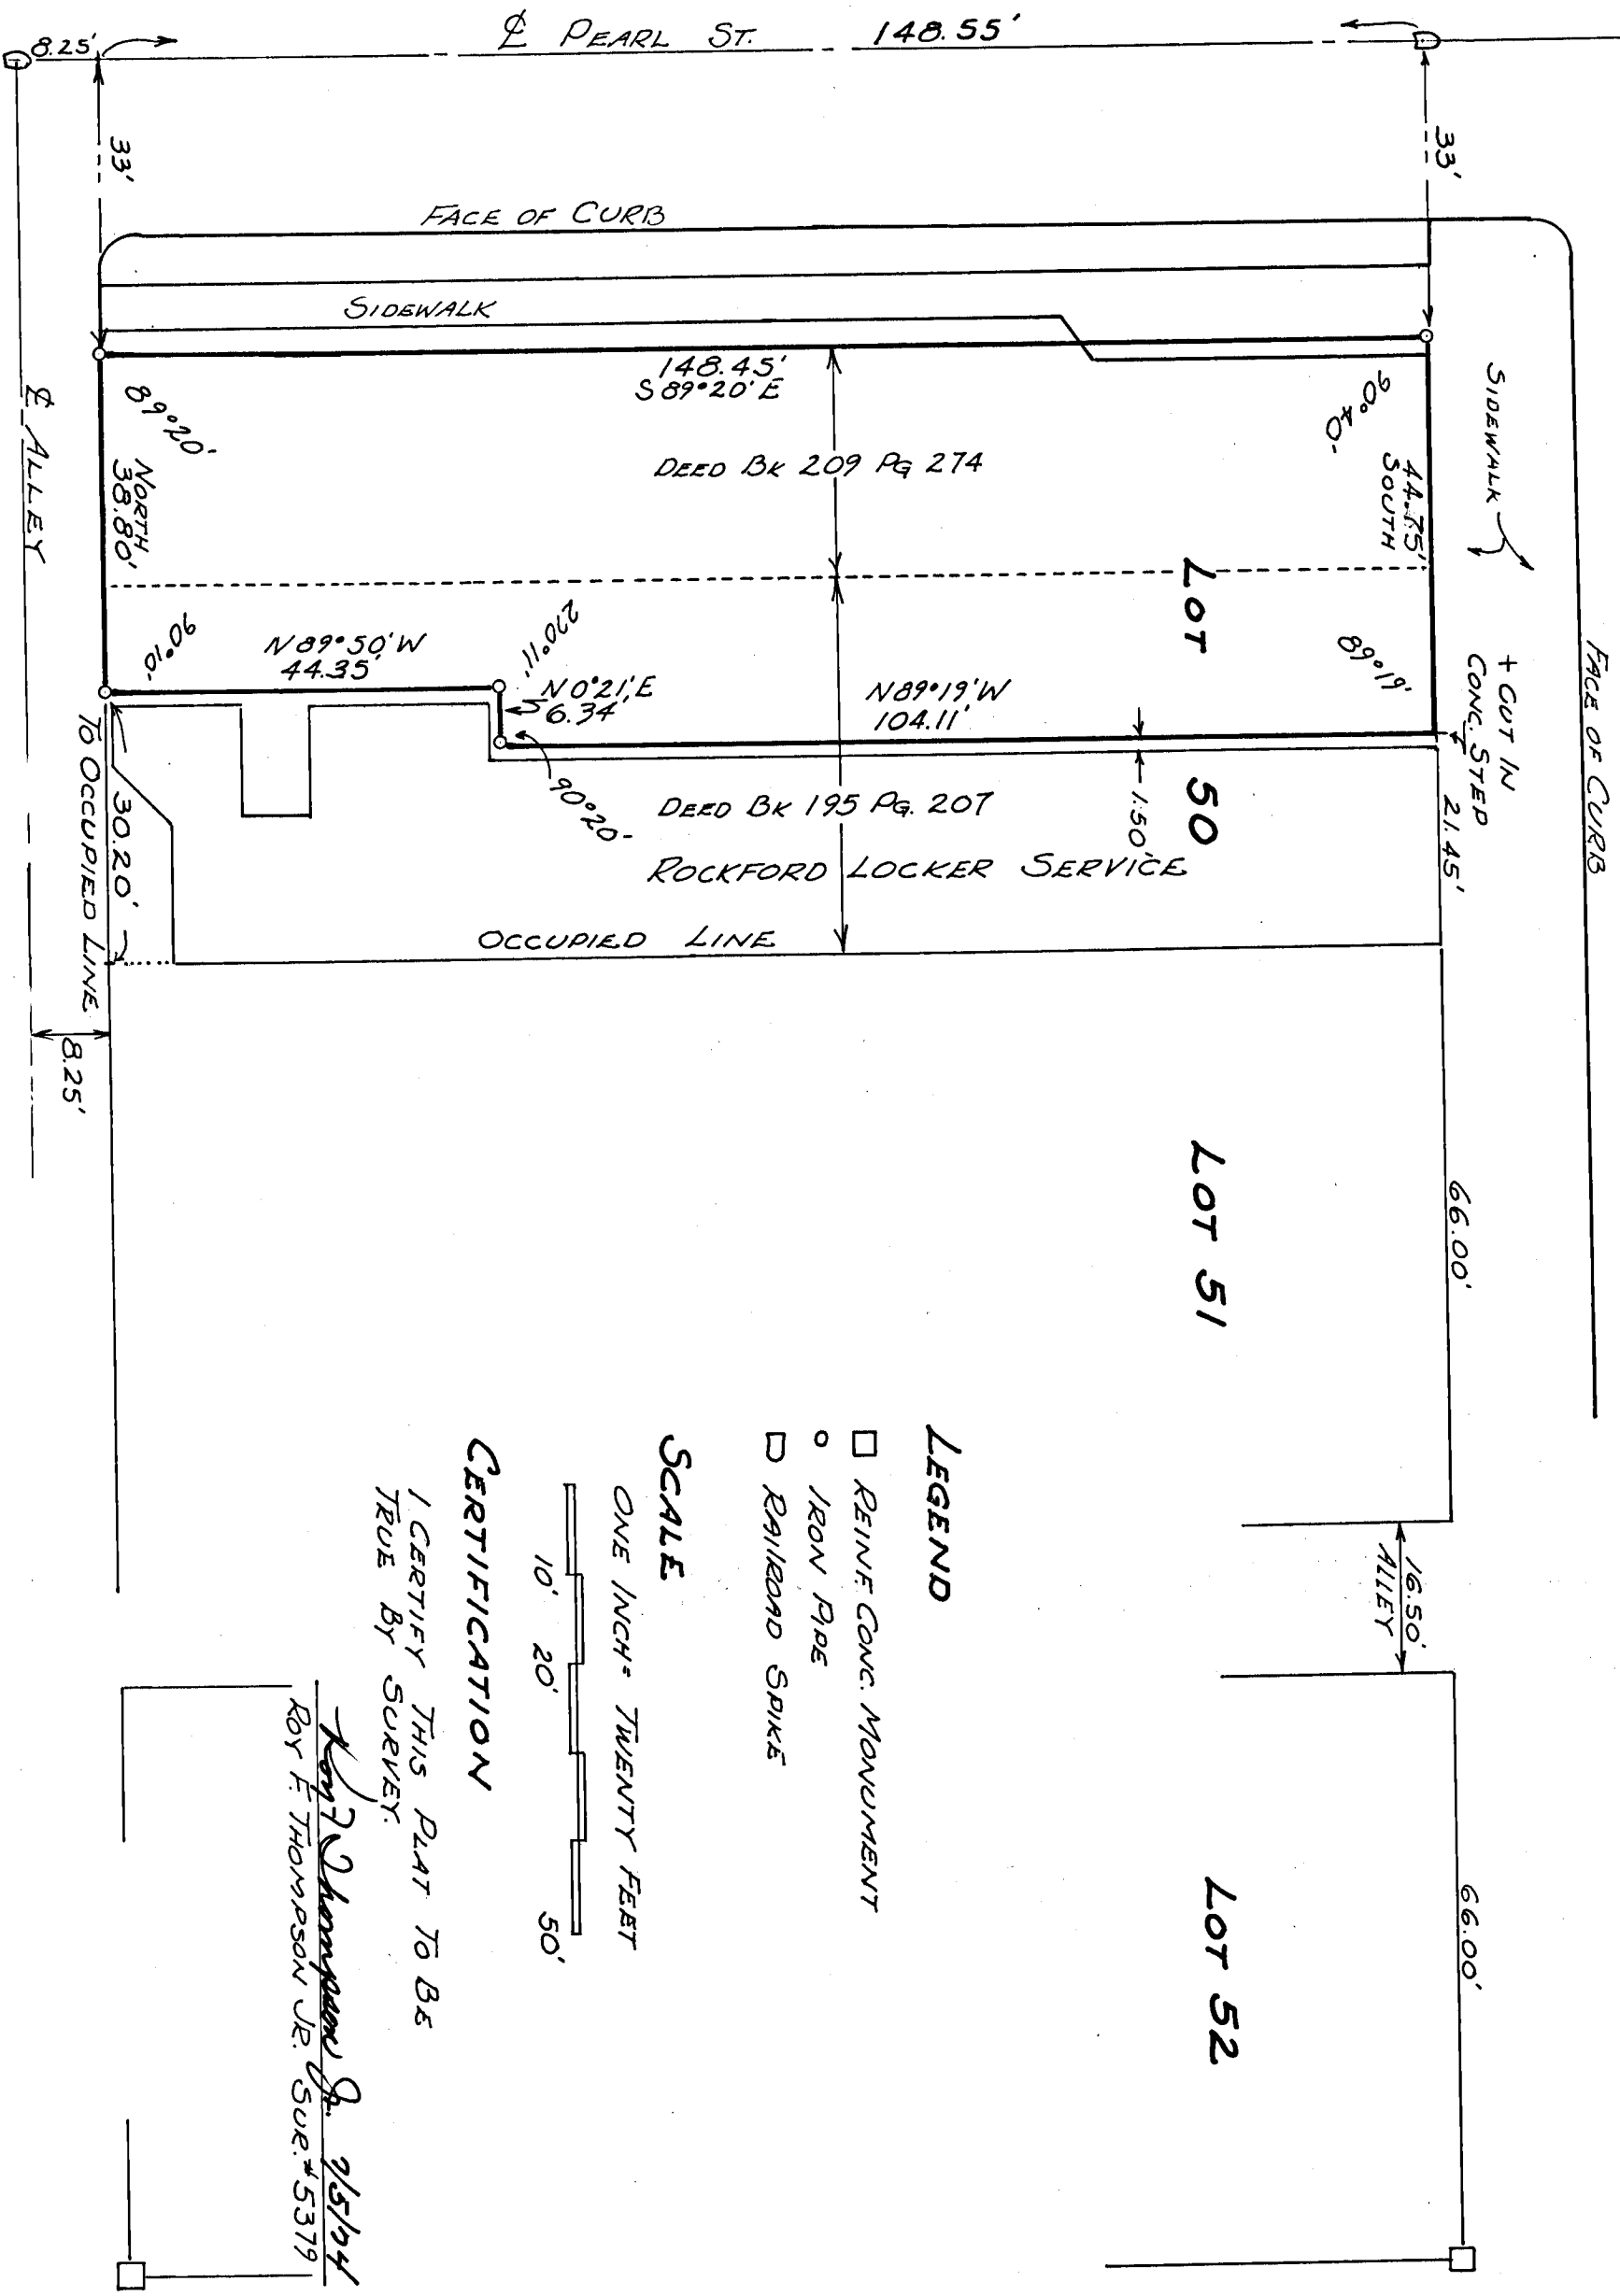 8.25'
℄ PEARL ST.
148.55'
33'
33'
FACE OF CURB
SIDEWALK
148.45'
S 89°20' E
89°20'
90°40'
SIDEWALK
44.75'
SOUTH
DEED BK 209 PG 274
NORTH
38.80'
℄ ALLEY
LOT 50
FACE OF CURB
+ CUT IN
CONC. STEP
89°19'
90°10'
N 89°50' W
44.35'
270°11'
N 0°21' E
6.34'
N 89°19' W
104.11'
90°20'
1.50'
21.45'
DEED BK 195 PG. 207
ROCKFORD LOCKER SERVICE
30.20'
TO OCCUPIED LINE
OCCUPIED LINE
8.25'
LOT 51
66.00'
16.50'
ALLEY
LOT 52
66.00'
LEGEND
REINF. CONC. MONUMENT
IRON PIPE
RAILROAD SPIKE
SCALE
ONE INCH = TWENTY FEET
10' 20' 50'
CERTIFICATION
I CERTIFY THIS PLAT TO BE
TRUE BY SURVEY.
Roy F Thompson Jr.
ROY F. THOMPSON JR. SUR. #5379